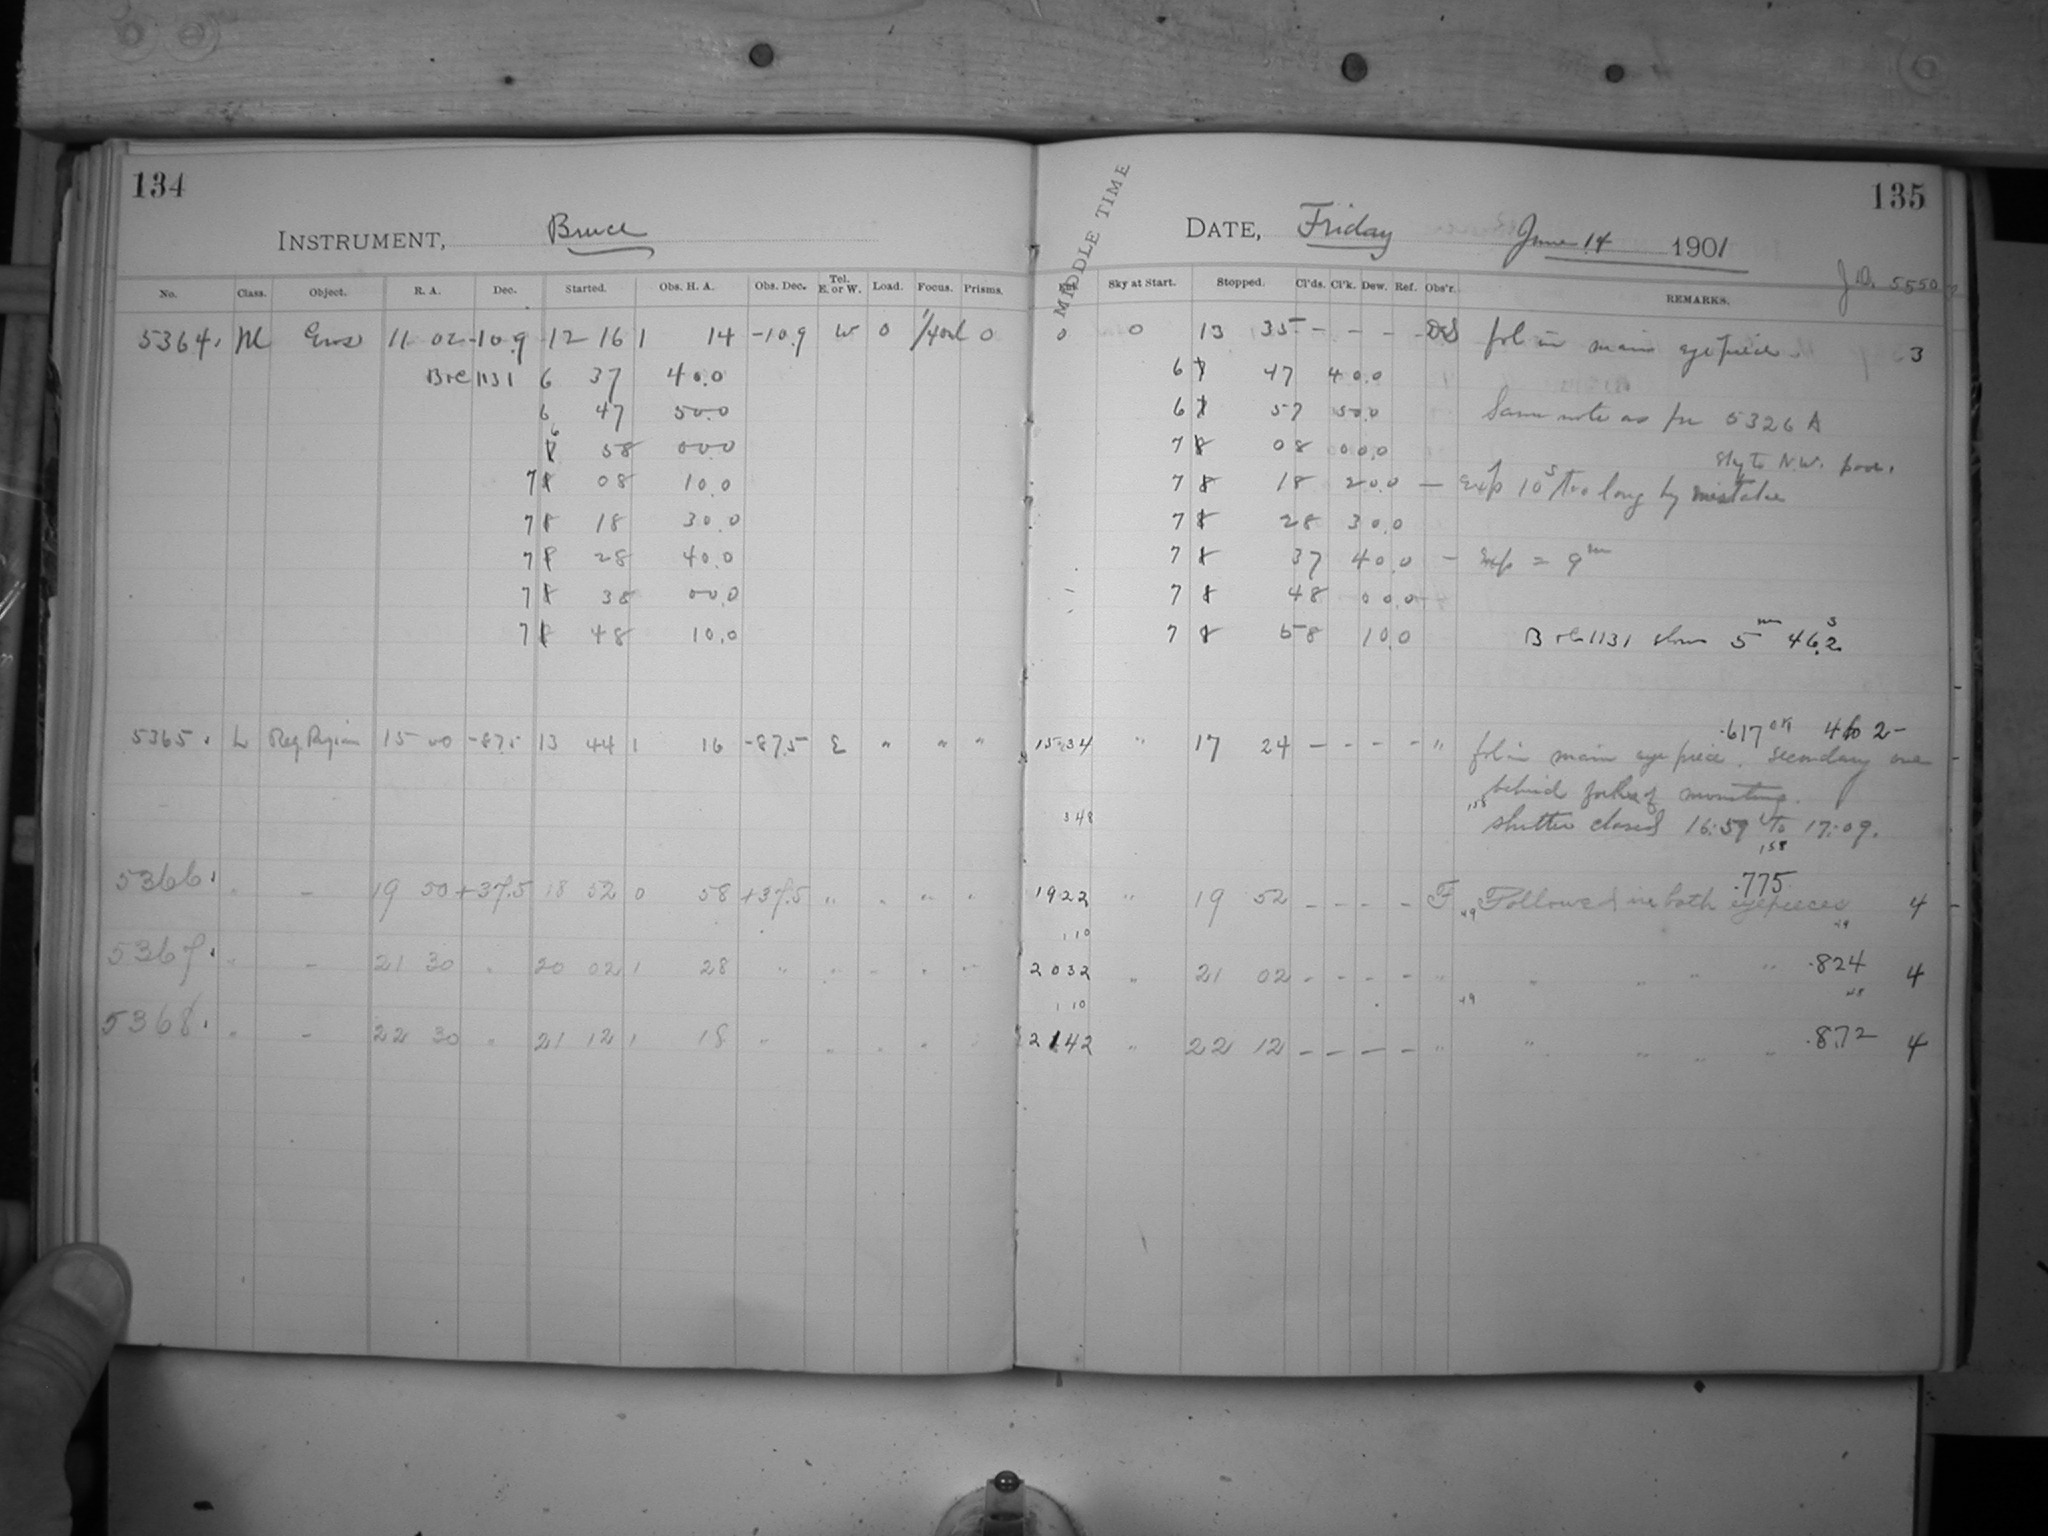 134
INSTRUMENT, Bruce
MIDDLE TIME
DATE, Friday June 14 1901
135
No. Class. Object. R. A. Dec. Started. Obs. H. A. Obs. Dec. Tel. E. or W. Load. Focus. Prisms. Sky at Start. Stopped. Cl'ds. Cl'k. Dew. Ref. Obs'r. REMARKS. J.D. 5550
5364. M Eros 11 02 -10.9 12 16 1 14 -10.9 W 0 0 0 0 13 35 - - - - DS fol in main eye piece. 3
Bre 1131 6 37 40.0 6 47 40.0
6 47 50.0 6 57 50.0 Same note as for 5326 A
6 58 00.0 7 08 00.0 Sky to N.W. poor.
7 08 10.0 7 18 20.0 — Exp 10s too long by mistake
7 18 30.0 7 28 30.0
7 28 40.0 7 37 40.0 — Exp = 9m
7 38 00.0 7 48 00.0
7 48 10.0 7 58 10.0 Bre 1131 slow 5m 46.2s
.617
5365. L Reg. Region 15 00 -87.5 13 44 1 16 -87.5 E " " " 15 34 " 17 24 - - - - " fol in main eye piece. Secondary one
behind forks of mounting.
3 48 shutter closed 16:59 to 17:09.
158
.775
5366. " - 19 50 +37.5 18 52 0 58 +37.5 " " " " 19 22 " 19 52 - - - - F Followed in both eyepieces 4
1 10 49
5367. " - 21 30 " 20 02 1 28 " " " " " 20 32 " 21 02 - - - - " " " " .824 4
1 10 49 48
5368. " - 22 30 " 21 12 1 18 " " " " " 21 42 " 22 12 - - - - " " " " " .872 4